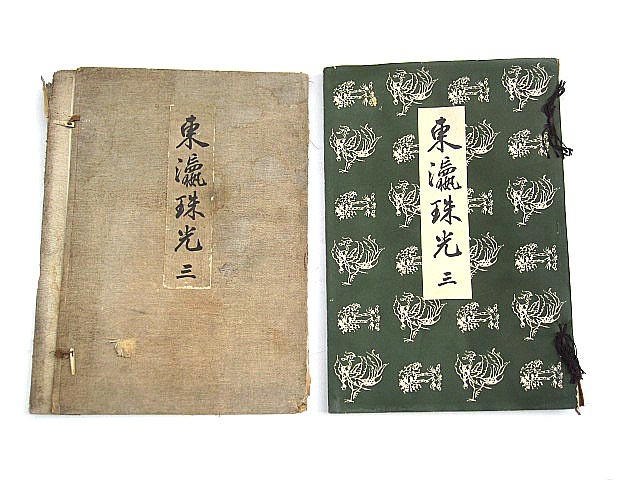 東瀛珠光
三
東瀛珠光
三